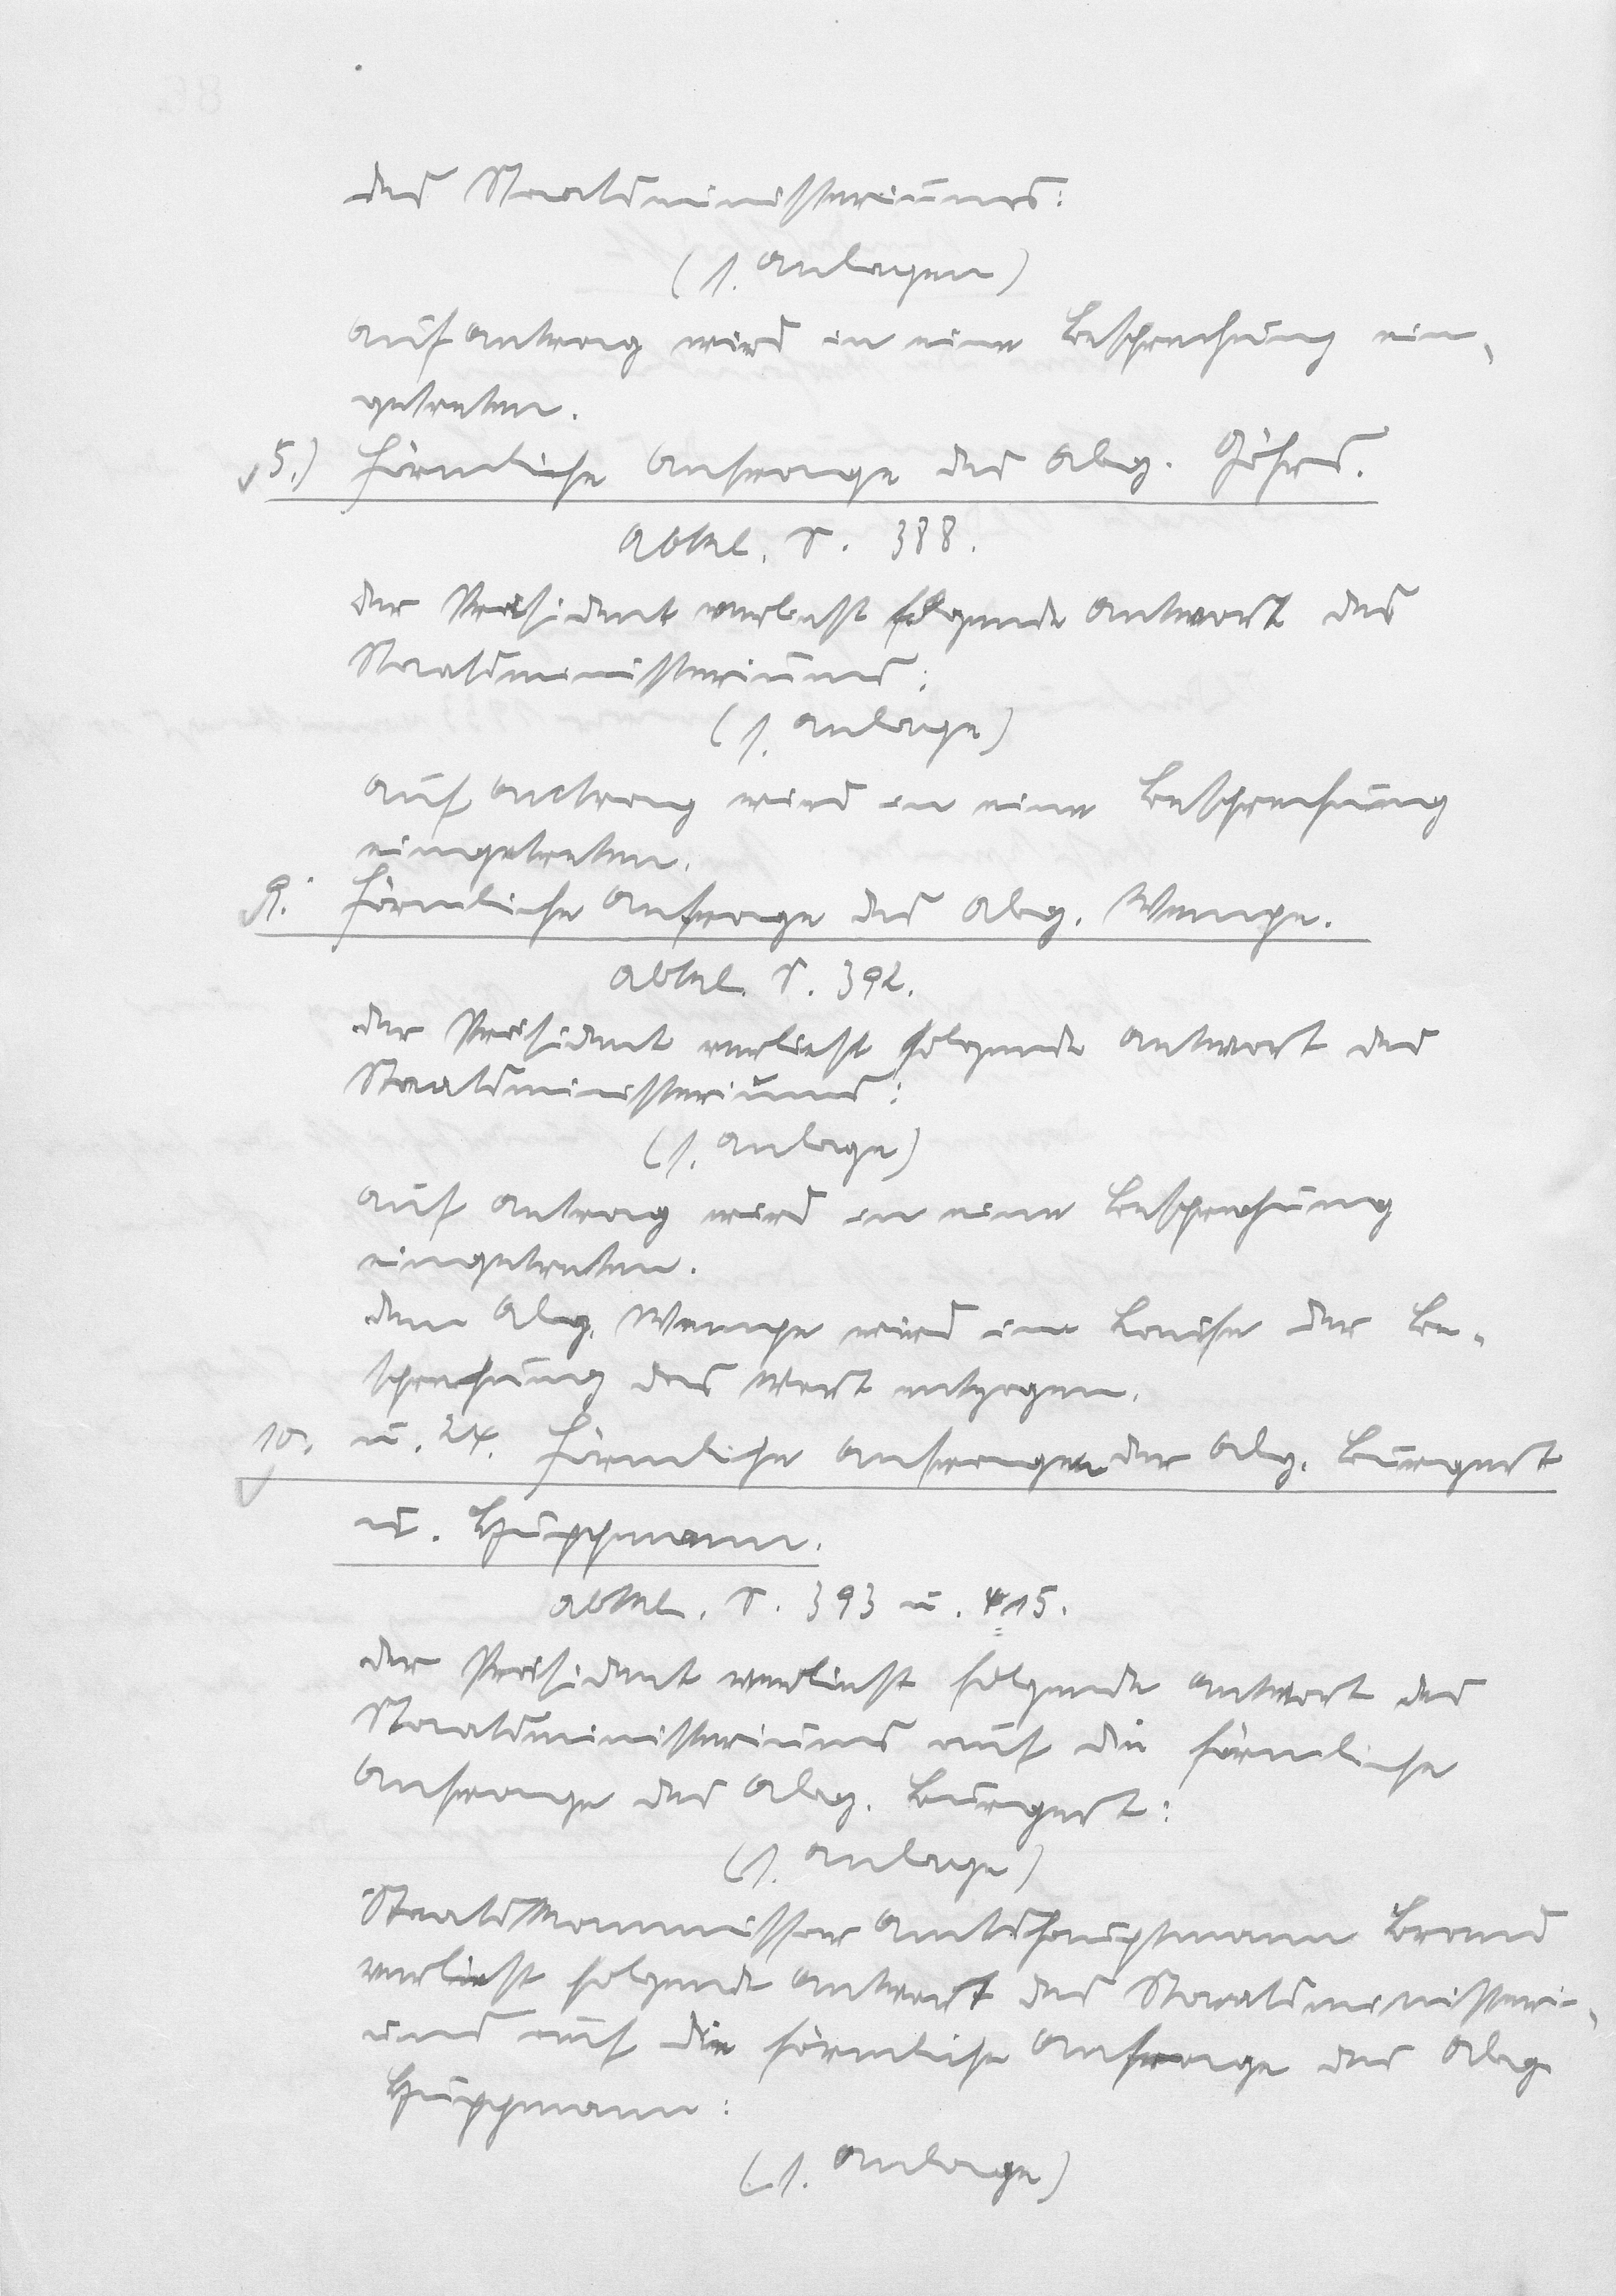 des Staatsministeriums:
(s. Anlagen)
Auf Antrag wird in eine Besprechung ein-
getreten.
5.) Förmliche Anfrage des Abg. Göhrs.
Abtl. S. 388.
Der Präsident verliest folgende Antwort des
Staatsministeriums:
(s. Anlage)
Auf Antrag wird in eine Besprechung
eingetreten.
9. Förmliche Anfrage des Abg. Wempe.
Abtl. S. 392.
Der Präsident verliest folgende Antwort des
Staatsministeriums:
(s. Anlage)
Auf Antrag wird in eine Besprechung
eingetreten.
Dem Abg. Wempe wird im Laufe der Be-
sprechung das Wort entzogen.
10. u. 24. Förmliche Anfragen der Abg. Burgert
u. Huppmann.
Abtl. S. 393 u. 415.
Der Präsident verliest folgende Antwort des
Staatsministeriums auf die förmliche
Anfrage des Abg. Burgert:
(s. Anlage)
Staatskommissar Amtshauptmann Brand
verliest folgende Antwort des Staatsministeri-
ums auf die förmliche Anfrage des Abg
Huppmann:
(s. Anlage)